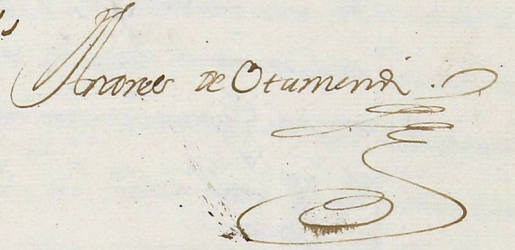 Andres de Otamendi